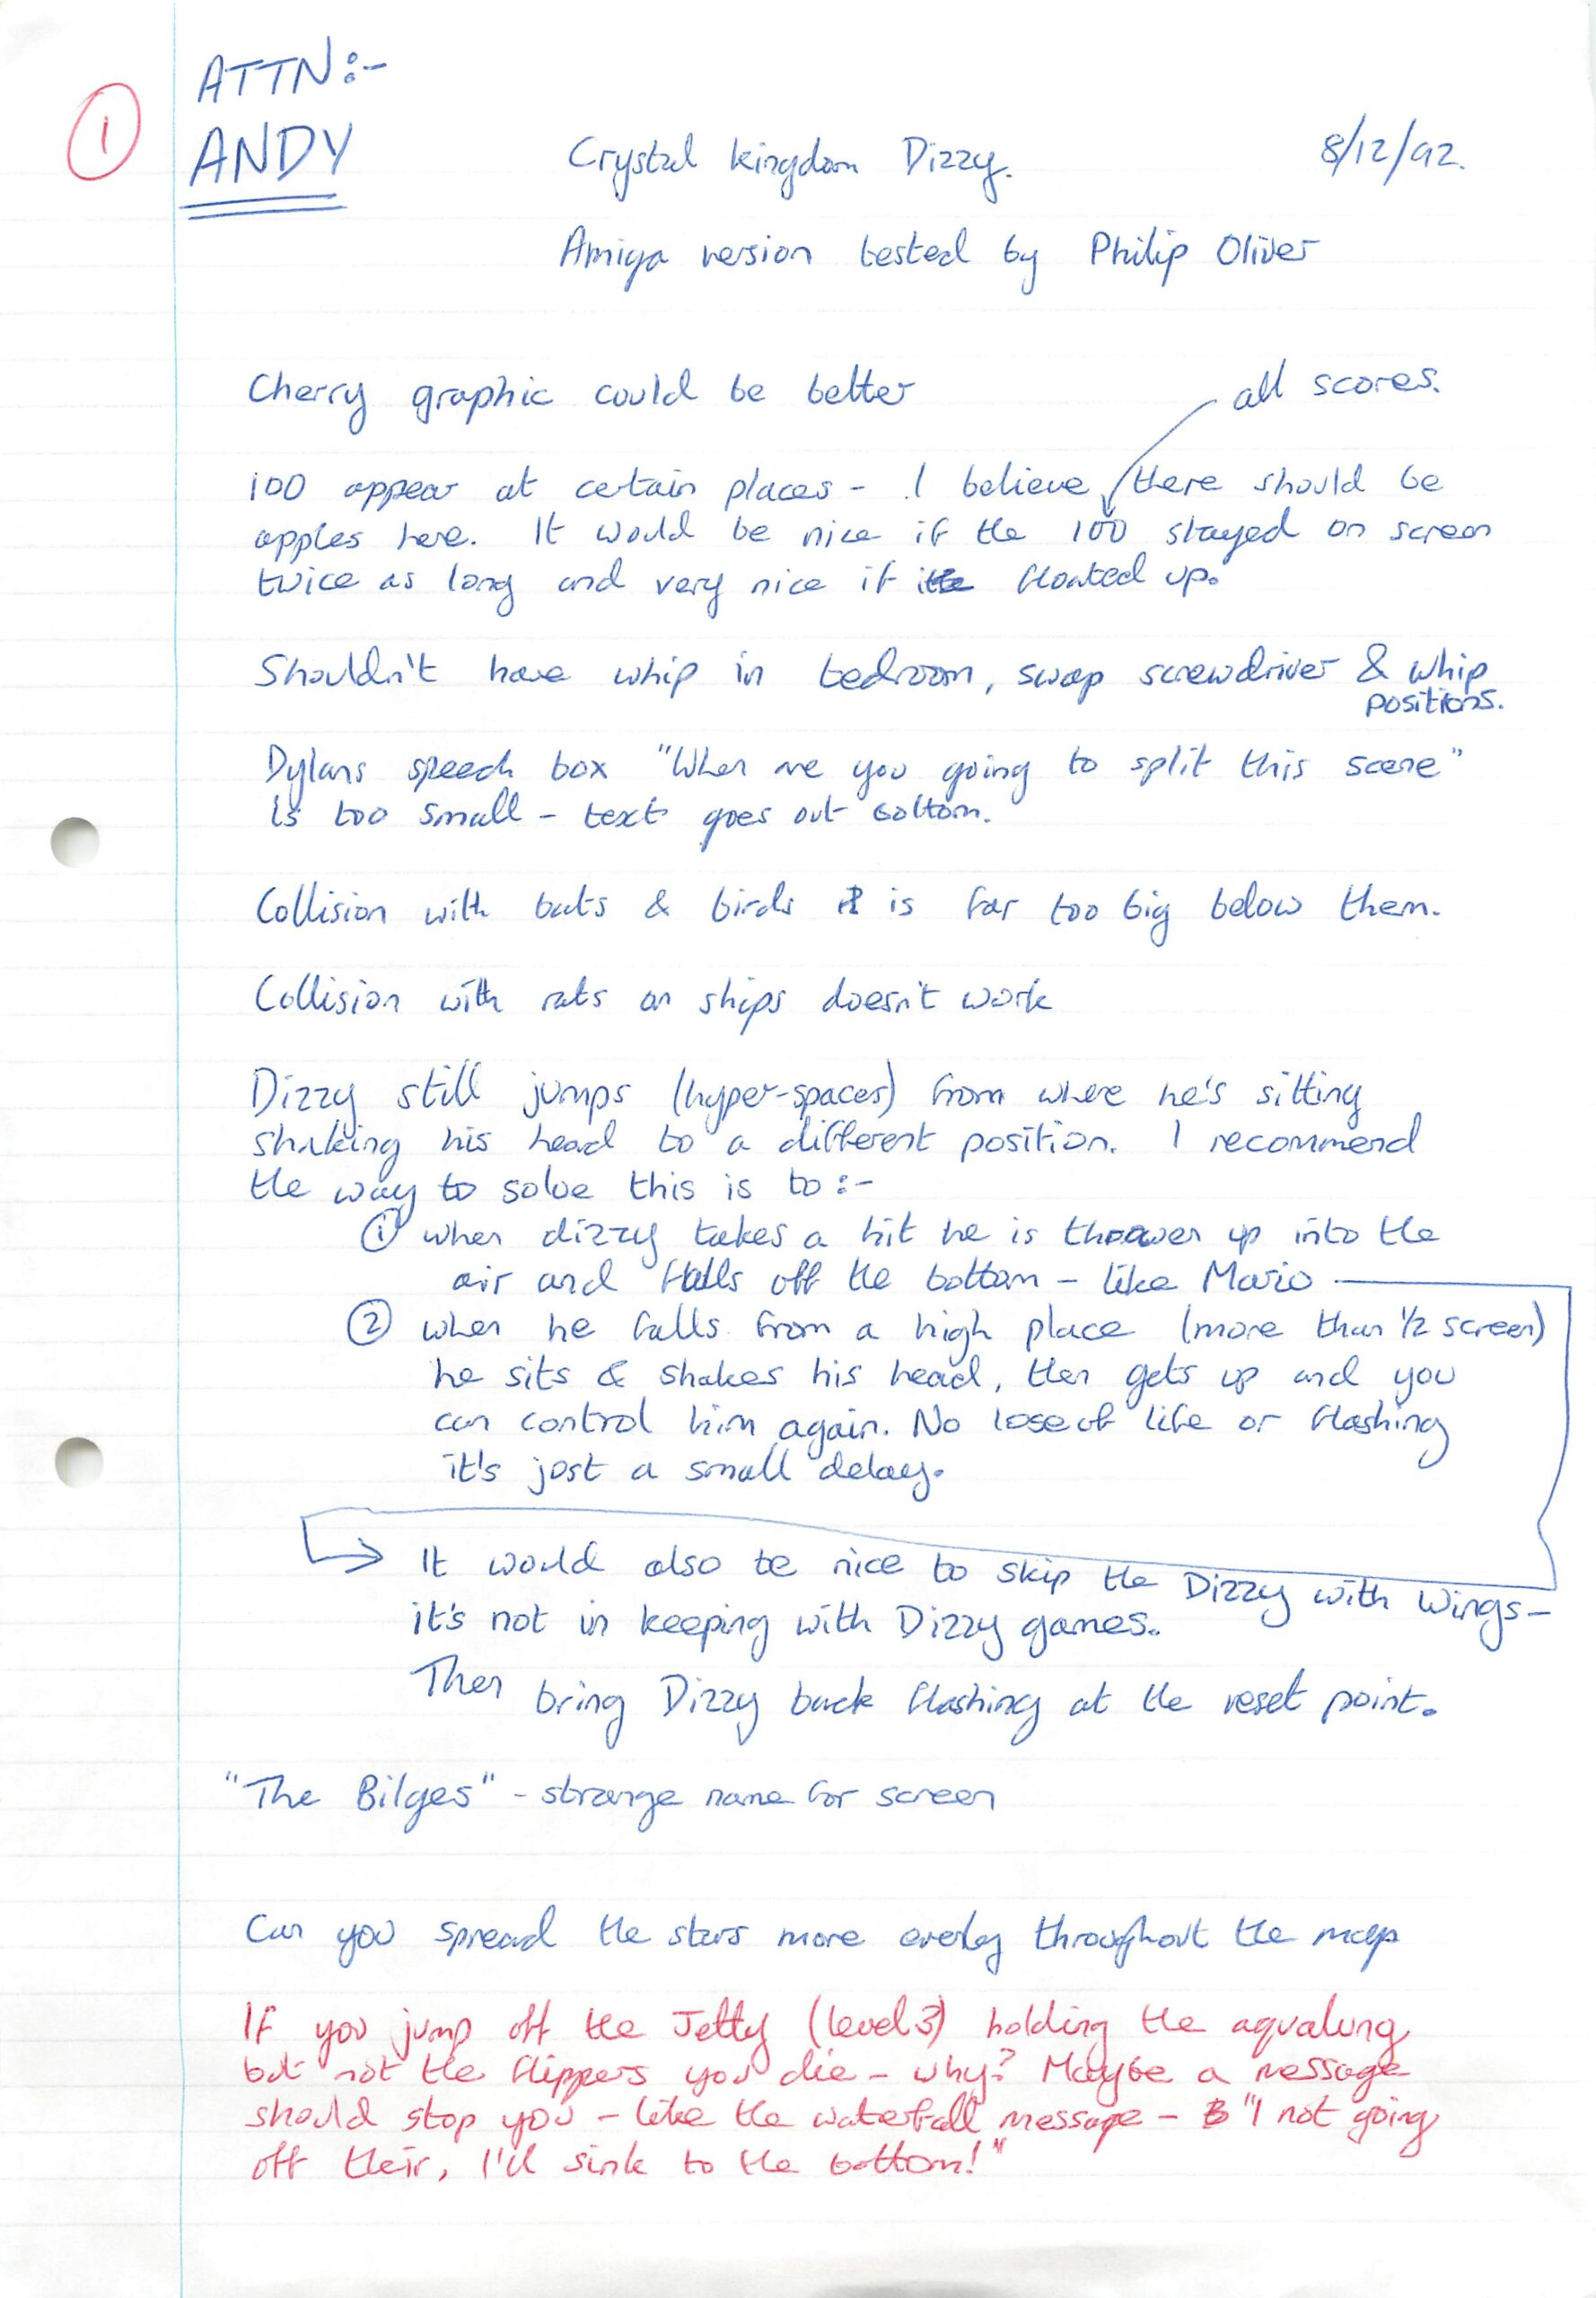 1
ATTN:-
ANDY
Crystal Kingdom Dizzy.
8/12/92.
Amiga version tested by Philip Oliver
Cherry graphic could be better
all scores.
100 appear at certain places - I believe there should be
apples here. It would be nice if the 100 stayed on screen
twice as long and very nice if it floated up.
Shouldn't have whip in bedroom, swap screwdriver & whip
positions.
Dylans speech box "When are you going to split this scene"
is too small - text goes out bottom.
Collision with bats & birds is far too big below them.
Collision with rats on ships doesn't work
Dizzy still jumps (hyper-spaces) from where he's sitting
shaking his head to a different position. I recommend
the way to solve this is to :-
① when dizzy takes a hit he is thrower up into the
air and falls off the bottom - like Mario
② when he falls from a high place (more than 1/2 screen)
he sits & shakes his head, then gets up and you
can control him again. No lose of life or flashing
it's just a small delay.
It would also be nice to skip the Dizzy with Wings -
it's not in keeping with Dizzy games.
Then bring Dizzy back flashing at the reset point.
"The Bilges" - strange name for screen
Can you spread the stars more evenly throughout the map
If you jump off the Jetty (level 3) holding the aqualung
but not the flippers you die - why? Maybe a message
should stop you - like the waterfall message - "I not going
off their, I'll sink to the bottom!"